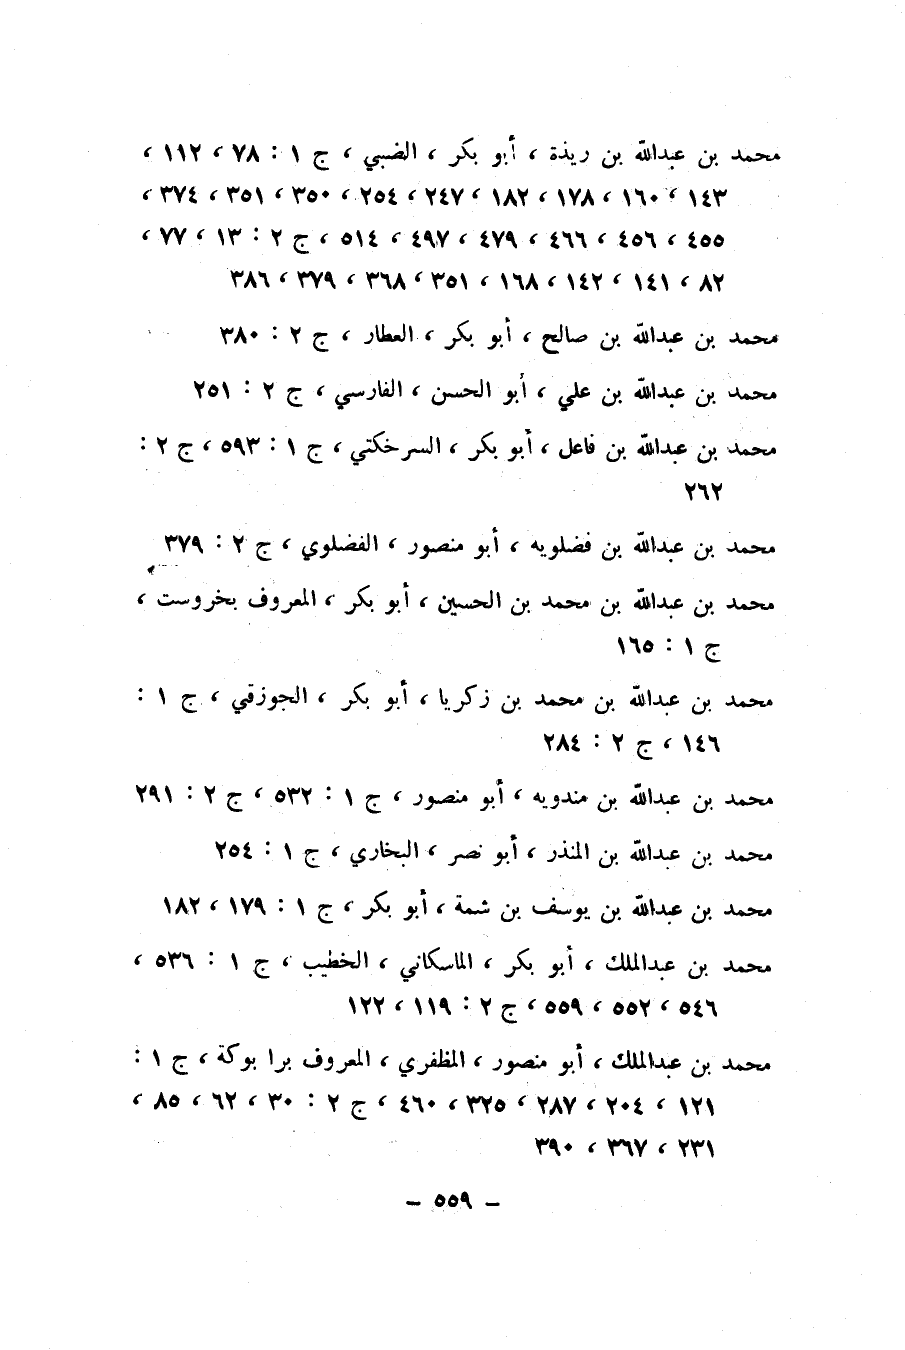 محمد بن عبدالله بن ريذة ، أبو بكر ، الضبي ، ج ١ : ٧٨ ، ١١٢ ،
١٤٣ ، ١٦٠ ، ١٧٨ ، ١٨٢ ، ٢٤٧ ، ٢٥٤ ، ٣٥٠ ، ٣٥١ ، ٣٧٤ ،
٤٥٥ ، ٤٥٦ ، ٤٦٦ ، ٤٧٩ ، ٤٩٧ ، ٥١٤ ، ج ٢ : ١٣ ، ٧٧ ،
٨٢ ، ١٤١ ، ١٤٢ ، ١٦٨ ، ٣٥١ ، ٣٦٨ ، ٣٧٩ ، ٣٨٦
محمد بن عبدالله بن صالح ، أبو بكر ، العطار ، ج ٢ : ٣٨٠
محمد بن عبدالله بن علي ، أبو الحسن ، الفارسي ، ج ٢ : ٢٥١
محمد بن عبدالله بن فاعل ، أبو بكر ، السرخكتي ، ج ١ : ٥٩٣ ، ج ٢ :
٢٦٢
محمد بن عبدالله بن فضلويه ، أبو منصور ، الفضلوي ، ج ٢ : ٣٧٩
محمد بن عبدالله بن محمد بن الحسين ، أبو بكر ، المعروف بخروست ،
ج ١ : ١٦٥
محمد بن عبدالله بن محمد بن زكريا ، أبو بكر ، الجوزقي ، ج ١ :
١٤٦ ، ج ٢ : ٢٨٤
محمد بن عبدالله بن مندويه ، أبو منصور ، ج ١ : ٥٣٢ ، ج ٢ : ٢٩١
محمد بن عبدالله بن المنذر ، أبو نصر ، البخاري ، ج ١ : ٢٥٤
محمد بن عبدالله بن يوسف بن شمة ، أبو بكر ، ج ١ : ١٧٩ ، ١٨٢
محمد بن عبدالملك ، أبو بكر ، الماسكاني ، الخطيب ، ج ١ : ٥٣٦ ،
٥٤٦ ، ٥٥٢ ، ٥٥٩ ، ج ٢ : ١١٩ ، ١٢٢
محمد بن عبدالملك ، أبو منصور ، المظفري ، المعروف برا بوكة ، ج ١ :
١٢١ ، ٢٠٤ ، ٢٨٧ ، ٣٢٥ ، ٤٦٠ ، ج ٢ : ٣٠ ، ٦٢ ، ٨٥ ،
٢٣١ ، ٣٦٧ ، ٣٩٠
– ٥٥٩ –